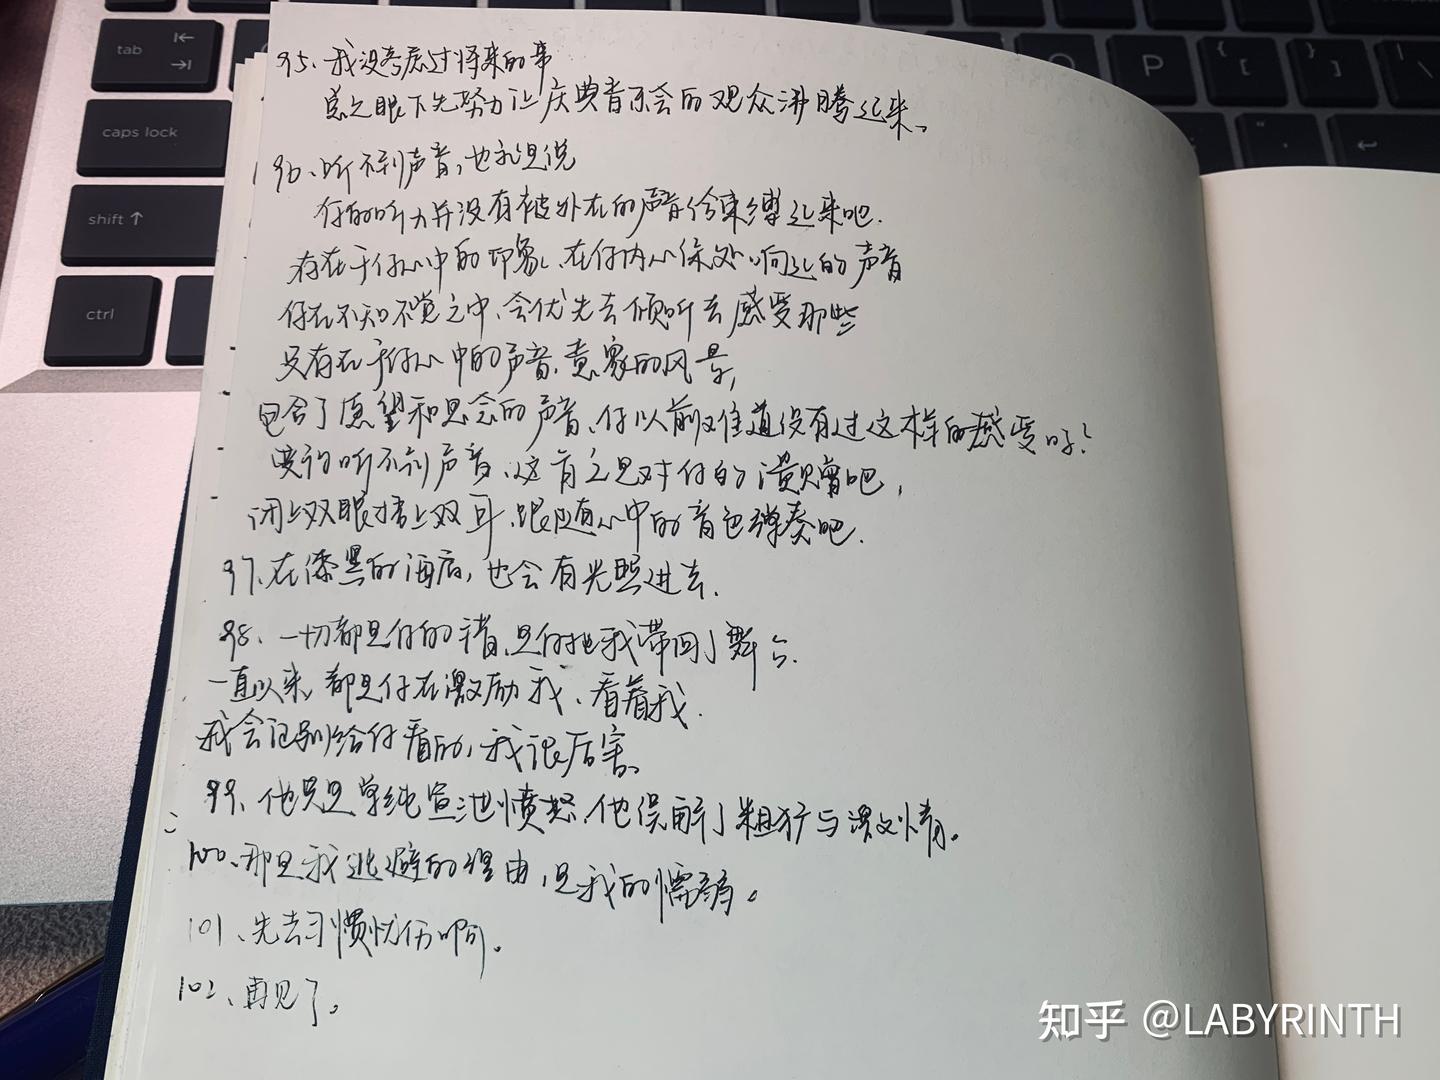 tab
caps lock
shift
ctrl
P
95、我没考虑过将来的事
总之眼下先努力让庆典音乐会的观众沸腾起来。
96、听不到声音,也就是说
你的听力并没有被外在的声音给束缚起来吧.
存在于你心中的印象、在你内心深处响起的声音
你在不知不觉之中、会优先去倾听去感受那些
只存在于你心中的声音、意象的风景,
包含了愿望和思念的声音、你以前难道没有过这样的感受吗?
要说听不到声音、这肯定是对你的馈赠吧,
闭上双眼捂上双耳、跟随心中的音色弹奏吧.
97、在漆黑的海底,也会有光照进去.
98、一切都是你的错,是你把我带回了舞台.
一直以来、都是你在激励我、看着我.
我会证明给你看的,我很厉害。
99、他只是单纯宣泄愤怒、他误解了粗犷与激情。
100、那是我逃避的理由,是我的懦弱。
101、先去习惯忧伤啊。
102、再见了。
知乎 @LABYRINTH